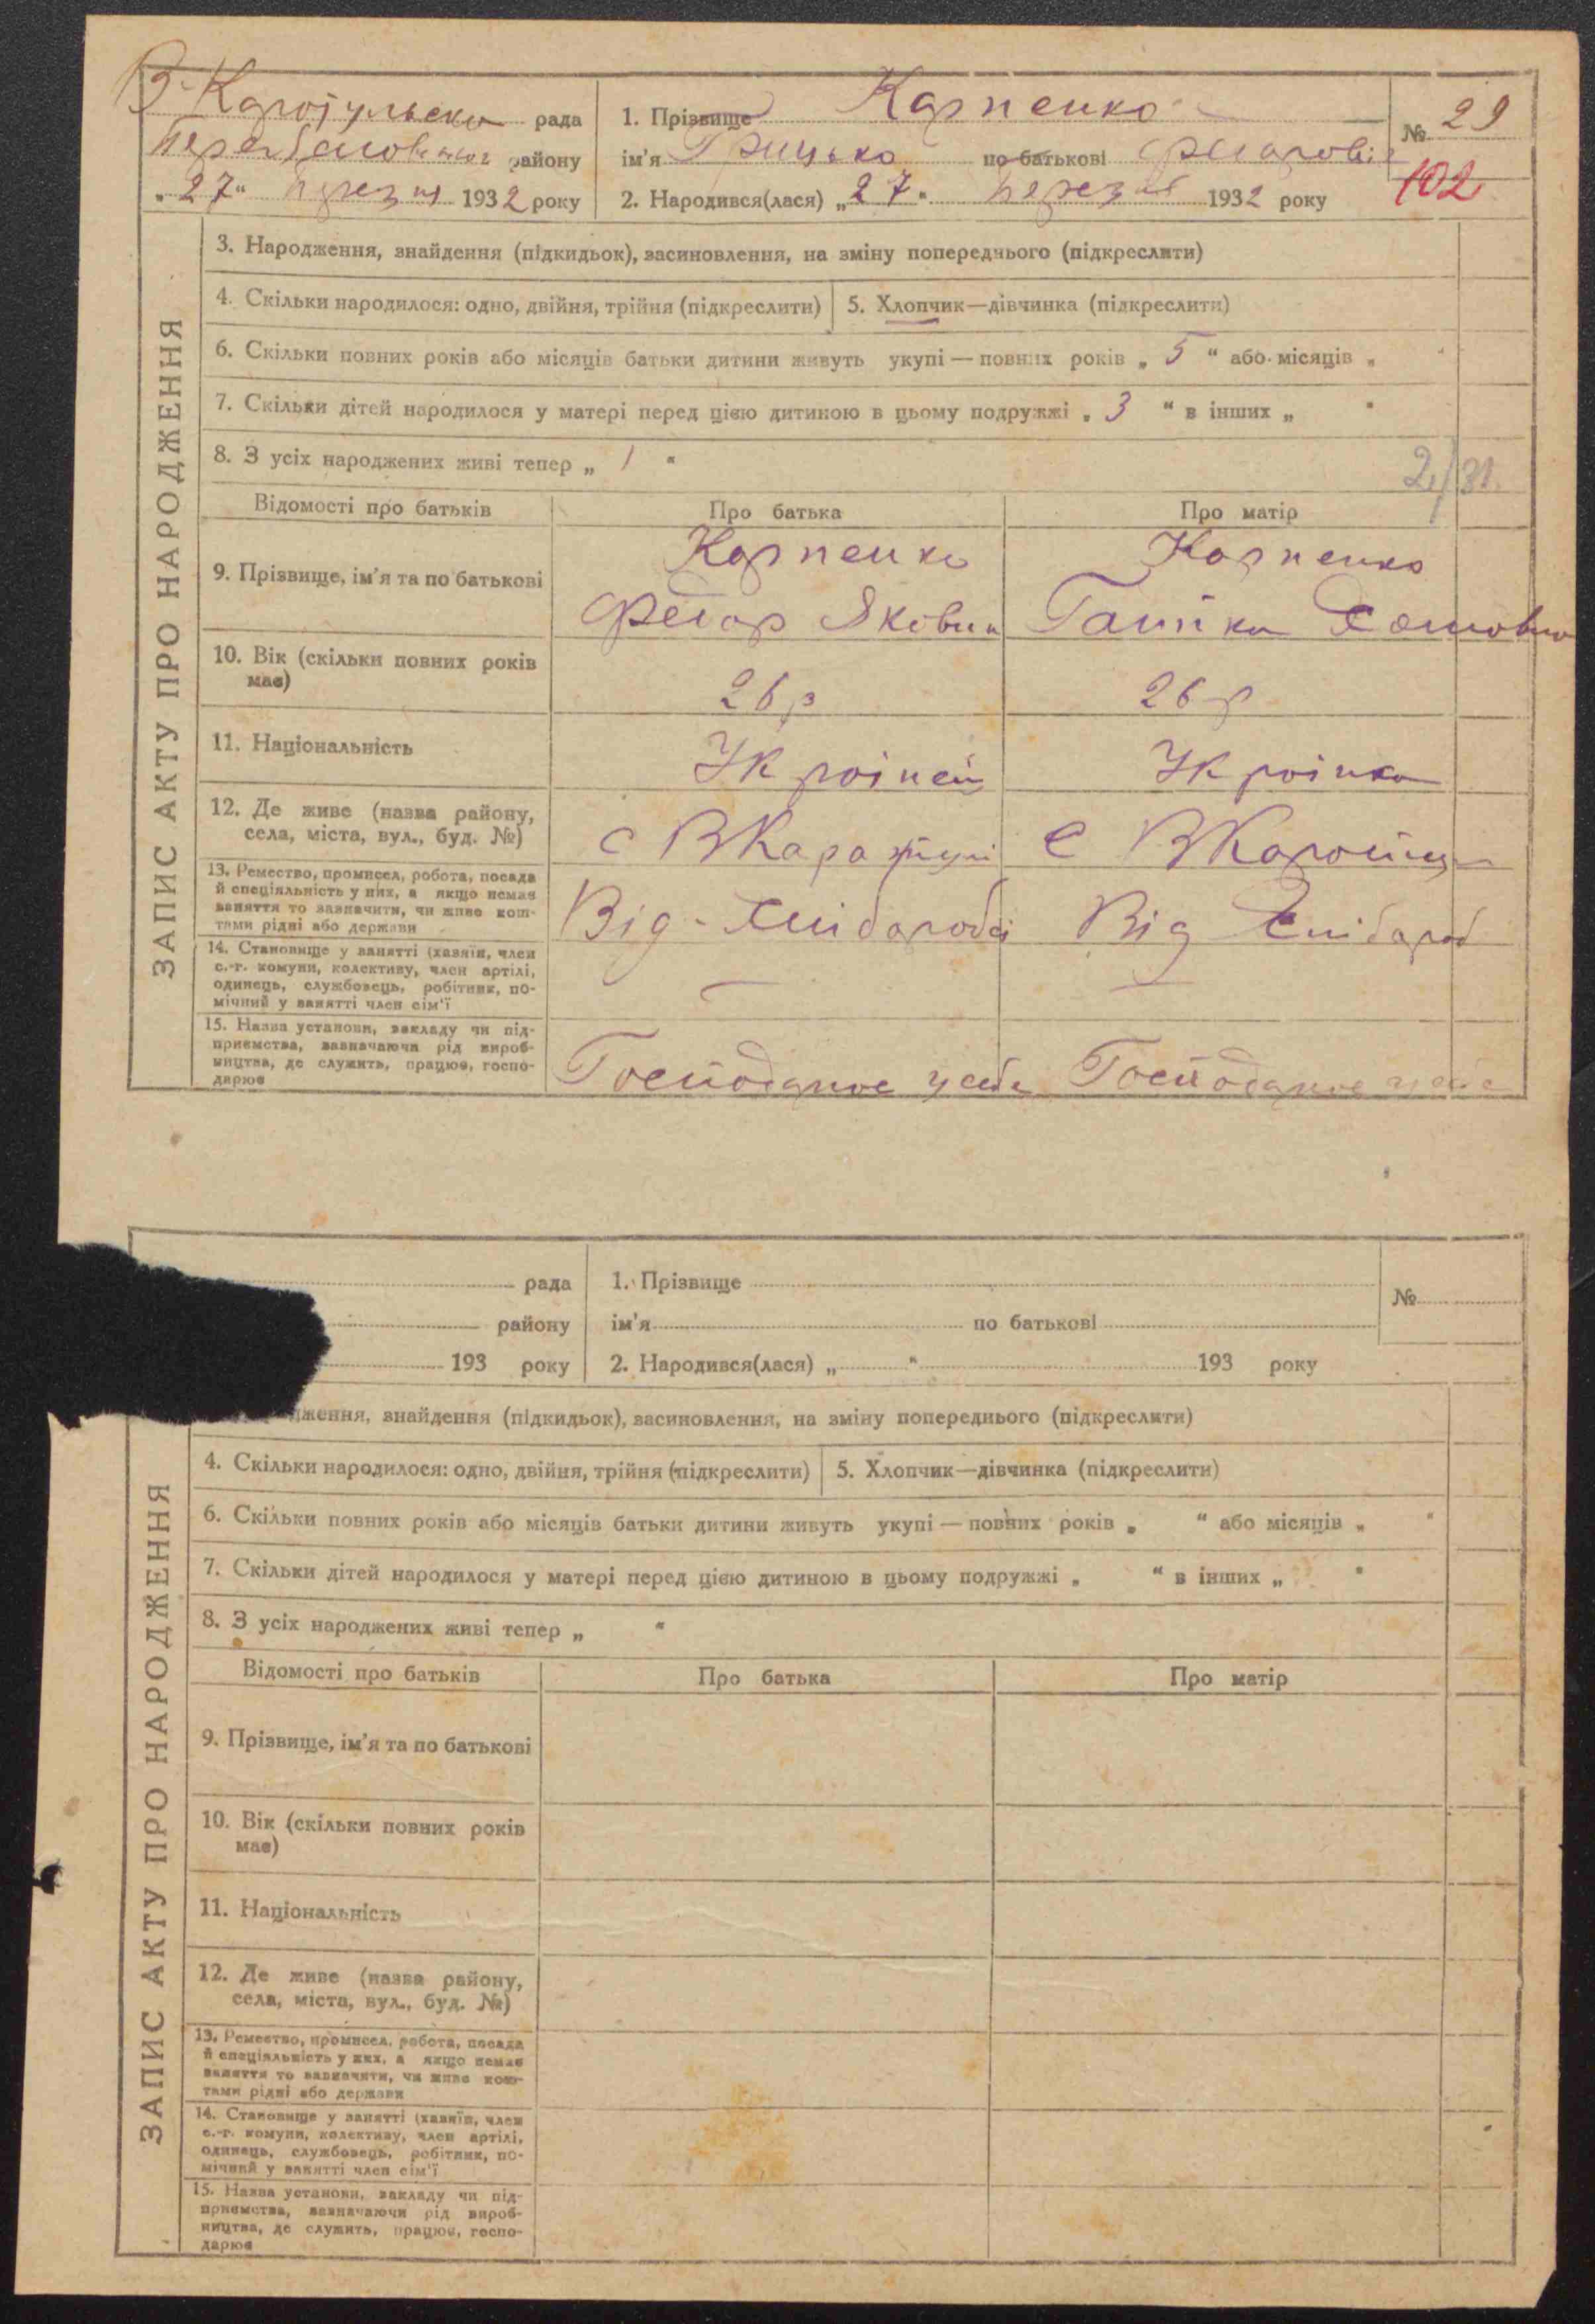 В-Каратульська рада
району
„27“ березня 1932 року
1. Прізвище Карпенко
ім'я Грицько по батькові Федорович
2. Народився(лася) „27“ березня 1932 року
№ 29
102
ЗАПИС АКТУ ПРО НАРОДЖЕННЯ
3. Народження, знайдення (підкидьок), засиновлення, на зміну попереднього (підкреслити)
4. Скільки народилося: одно, двійня, трійня (підкреслити)
5. Хлопчик—дівчинка (підкреслити)
6. Скільки повних років або місяців батьки дитини живуть укупі — повних років „ 5 “ або місяців „ “
7. Скільки дітей народилося у матері перед цією дитиною в цьому подружжі „ 3 “ в інших „ “
8. З усіх народжених живі тепер „ 1 “
Відомості про батьків
Про батька
Про матір
9. Прізвище, ім'я та по батькові
Карпенко
Федор Якович
Карпенко
Гапка
10. Вік (скільки повних років
має)
26 р
26 р
11. Національність
Украінец
Украінка
12. Де живе (назва району,
села, міста, вул., буд. №)
с ВКаратулі
с ВКаратул
13. Ремество, промисел, робота, посада
й спеціяльність у них, а якщо немає
заняття то зазначити, чи живе кош-
тами рідні або держави
Від-Хлібаробсі
Від Хлібароб
14. Становище у занятті (хазяїн, член
с.-г. комуни, колективу, член артілі,
одинець, службовець, робітник, по-
мічний у занятті член сім'ї
—
—
15. Назва установи, закладу чи під-
приємства, зазначаючи рід вироб-
ництва, де служить, працює, госпо-
дарює
Господарює у себе
Господарює у себе
рада
району
193 року
1. Прізвище
ім'я по батькові
2. Народився(лася) „ “ 193 року
№
ЗАПИС АКТУ ПРО НАРОДЖЕННЯ
дження, знайдення (підкидьок), засиновлення, на зміну попереднього (підкреслити)
4. Скільки народилося: одно, двійня, трійня (підкреслити)
5. Хлопчик—дівчинка (підкреслити)
6. Скільки повних років або місяців батьки дитини живуть укупі — повних років „ “ або місяців „ “
7. Скільки дітей народилося у матері перед цією дитиною в цьому подружжі „ “ в інших „ “
8. З усіх народжених живі тепер „ “
Відомості про батьків
Про батька
Про матір
9. Прізвище, ім'я та по батькові
10. Вік (скільки повних років
має)
11. Національність
12. Де живе (назва району,
села, міста, вул., буд. №)
13. Ремество, промисел, робота, посада
й спеціяльність у них, а якщо немає
заняття то зазначити, чи живе кош-
тами рідні або держави
14. Становище у занятті (хазяїн, член
с.-г. комуни, колективу, член артілі,
одинець, службовець, робітник, по-
мічний у занятті член сім'ї
15. Назва установи, закладу чи під-
приємства, зазначаючи рід вироб-
ництва, де служить, працює, госпо-
дарює